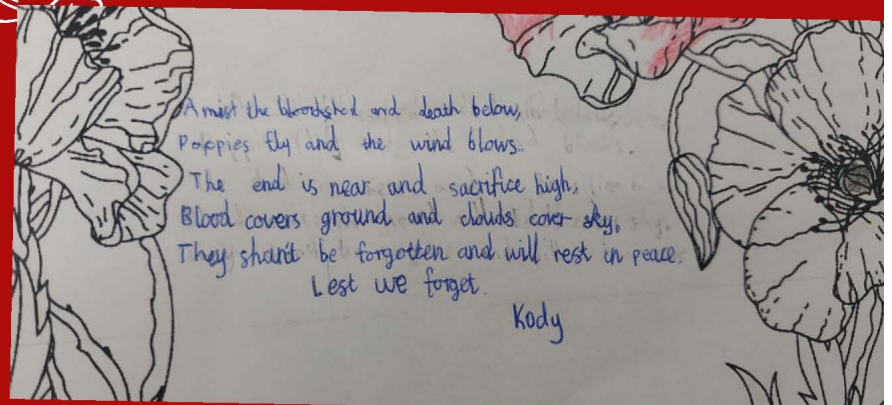 Amist the bloodshed and death below,
Poppies fly and the wind blows..
The end is near and sacrifice high,
Blood covers ground and clouds cover sky,
They shan't be forgotten and will rest in peace.
Lest we forget.
Kody